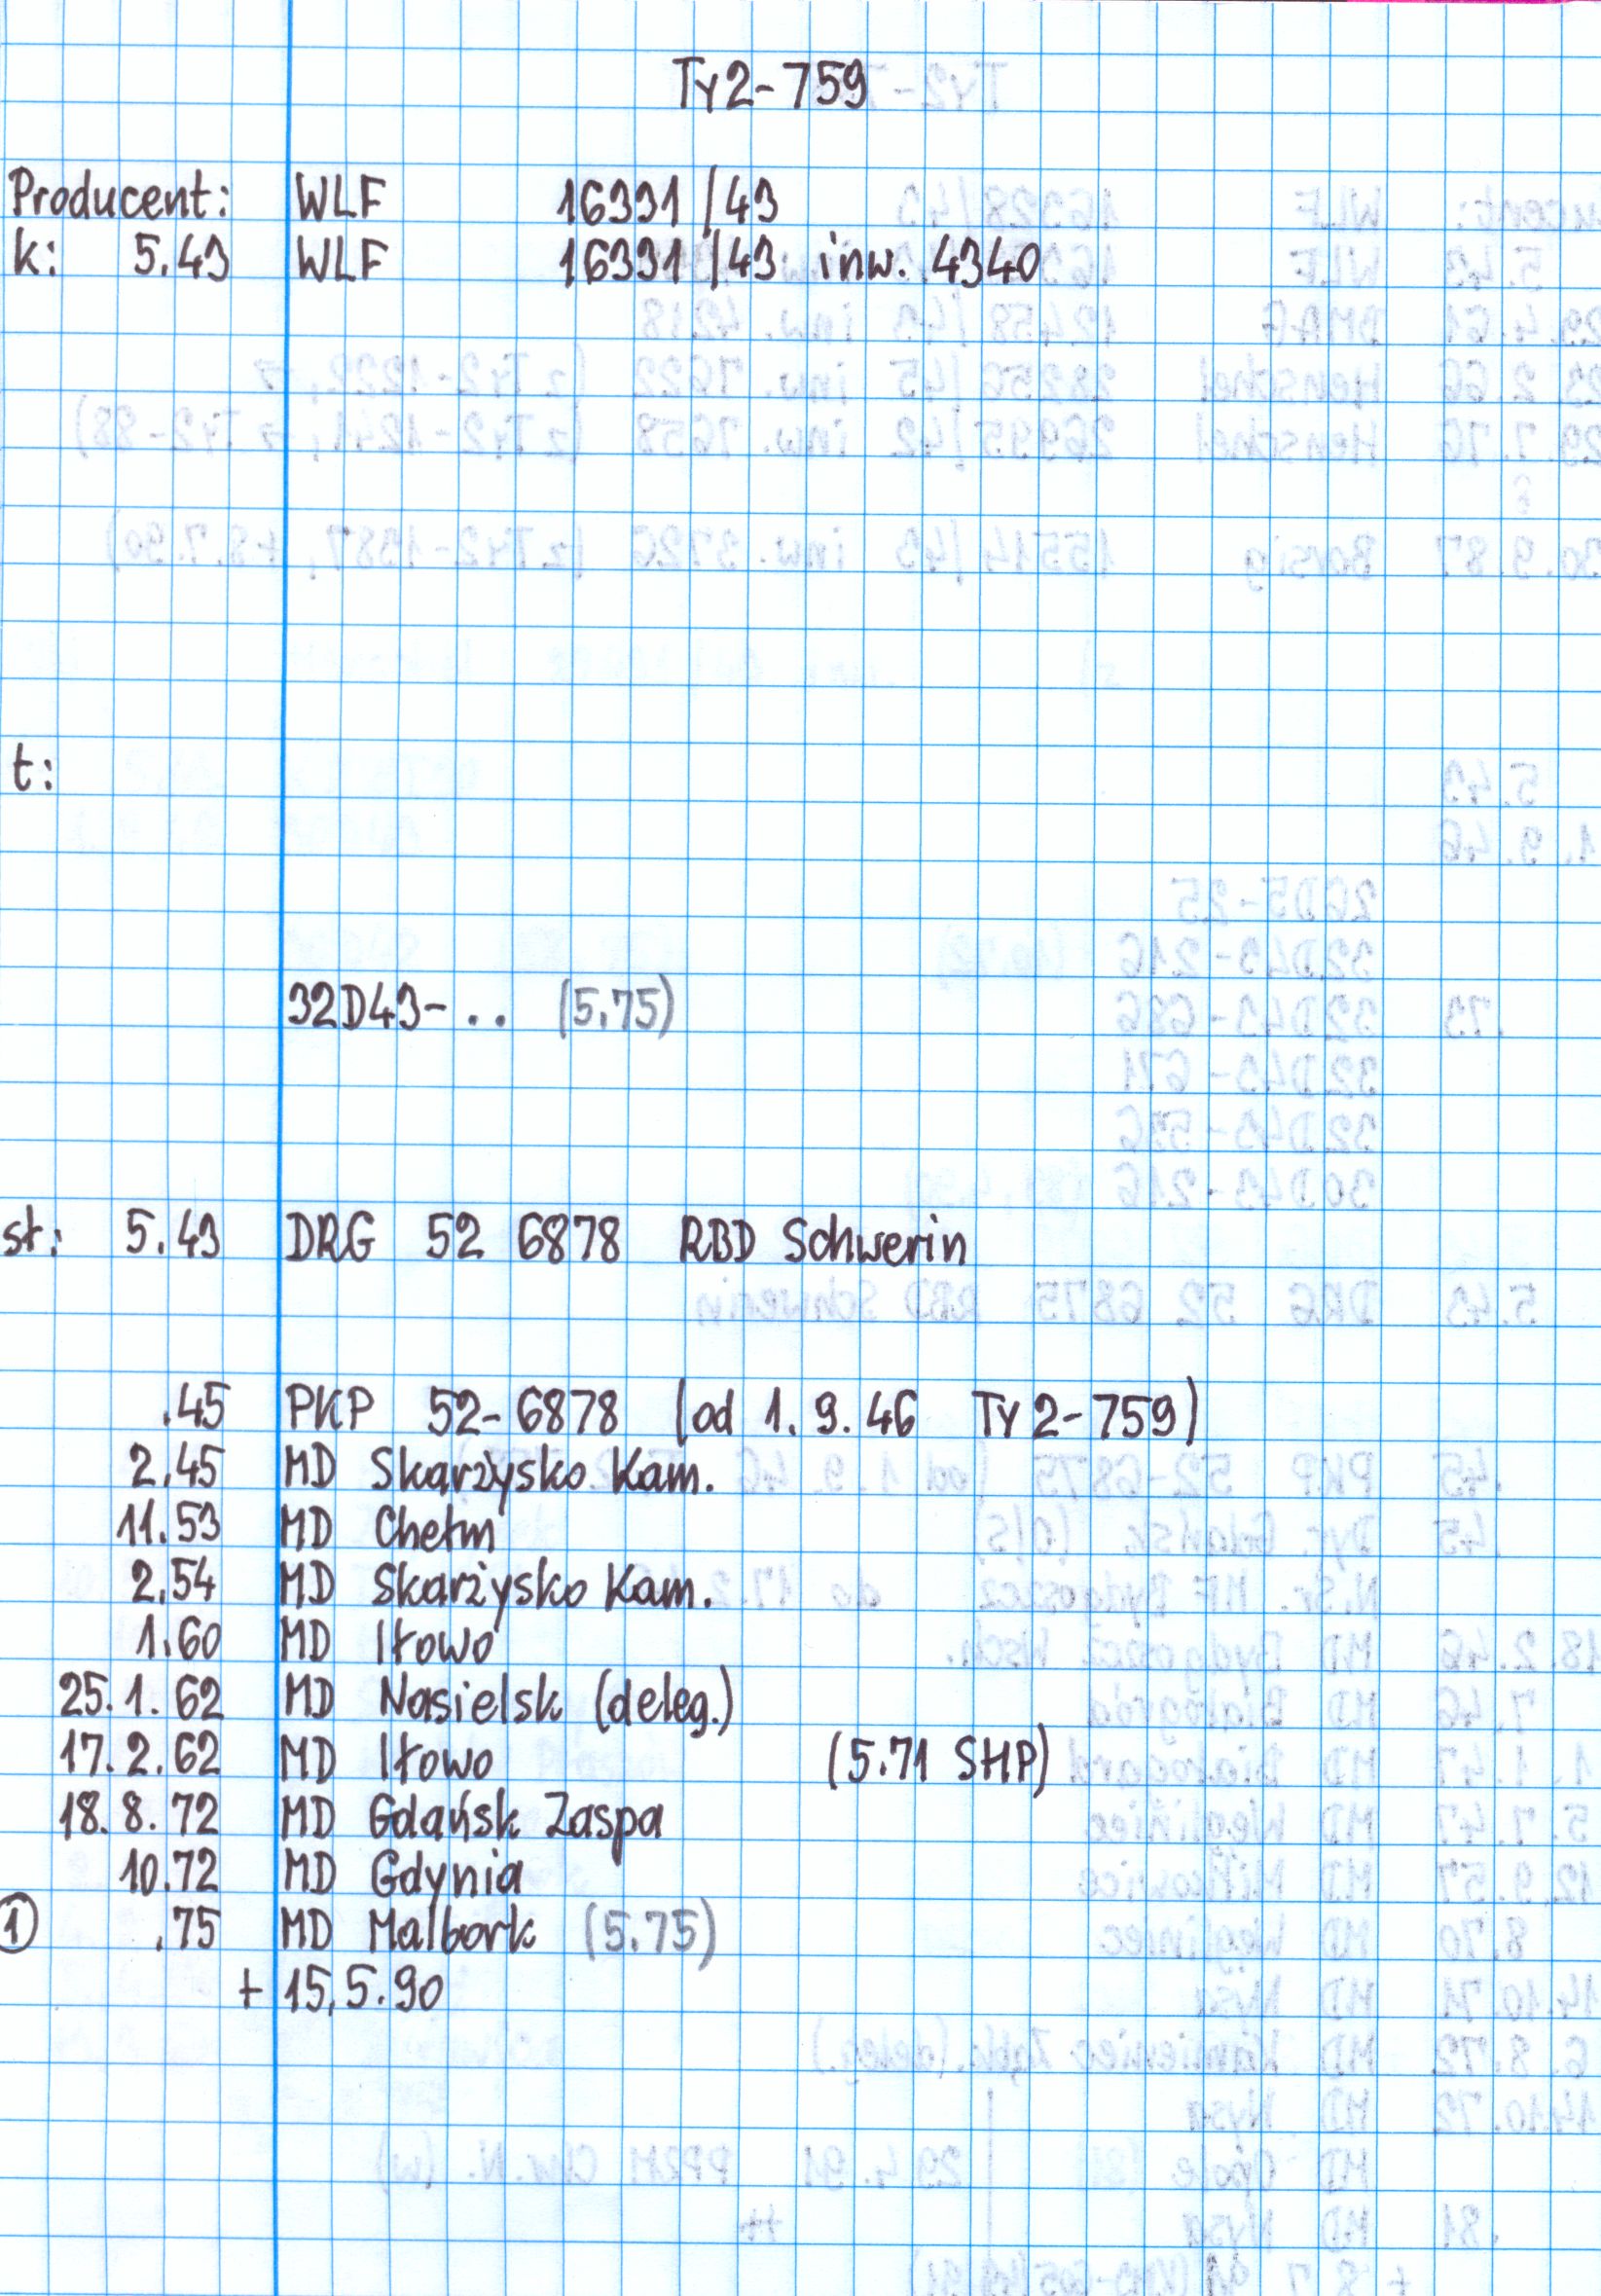 Ty2-759
Producent: WLF 16331/43
k: 5.43 WLF 16331/43 inw. 4340
t:
32D43-.. (5.75)
st: 5.43 DRG 52 6878 RBD Schwerin
.45 PKP 52-6878 (od 1.9.46 Ty2-759)
2.45 MD Skarżysko Kam.
11.53 MD Chełm
2.54 MD Skarżysko Kam.
1.60 MD Iłowo
25.1.62 MD Nasielsk (deleg.)
17.2.62 MD Iłowo (5.71 SHP)
18.8.72 MD Gdańsk Zaspa
10.72 MD Gdynia
1 .75 MD Malbork (5.75)
+ 15.5.90